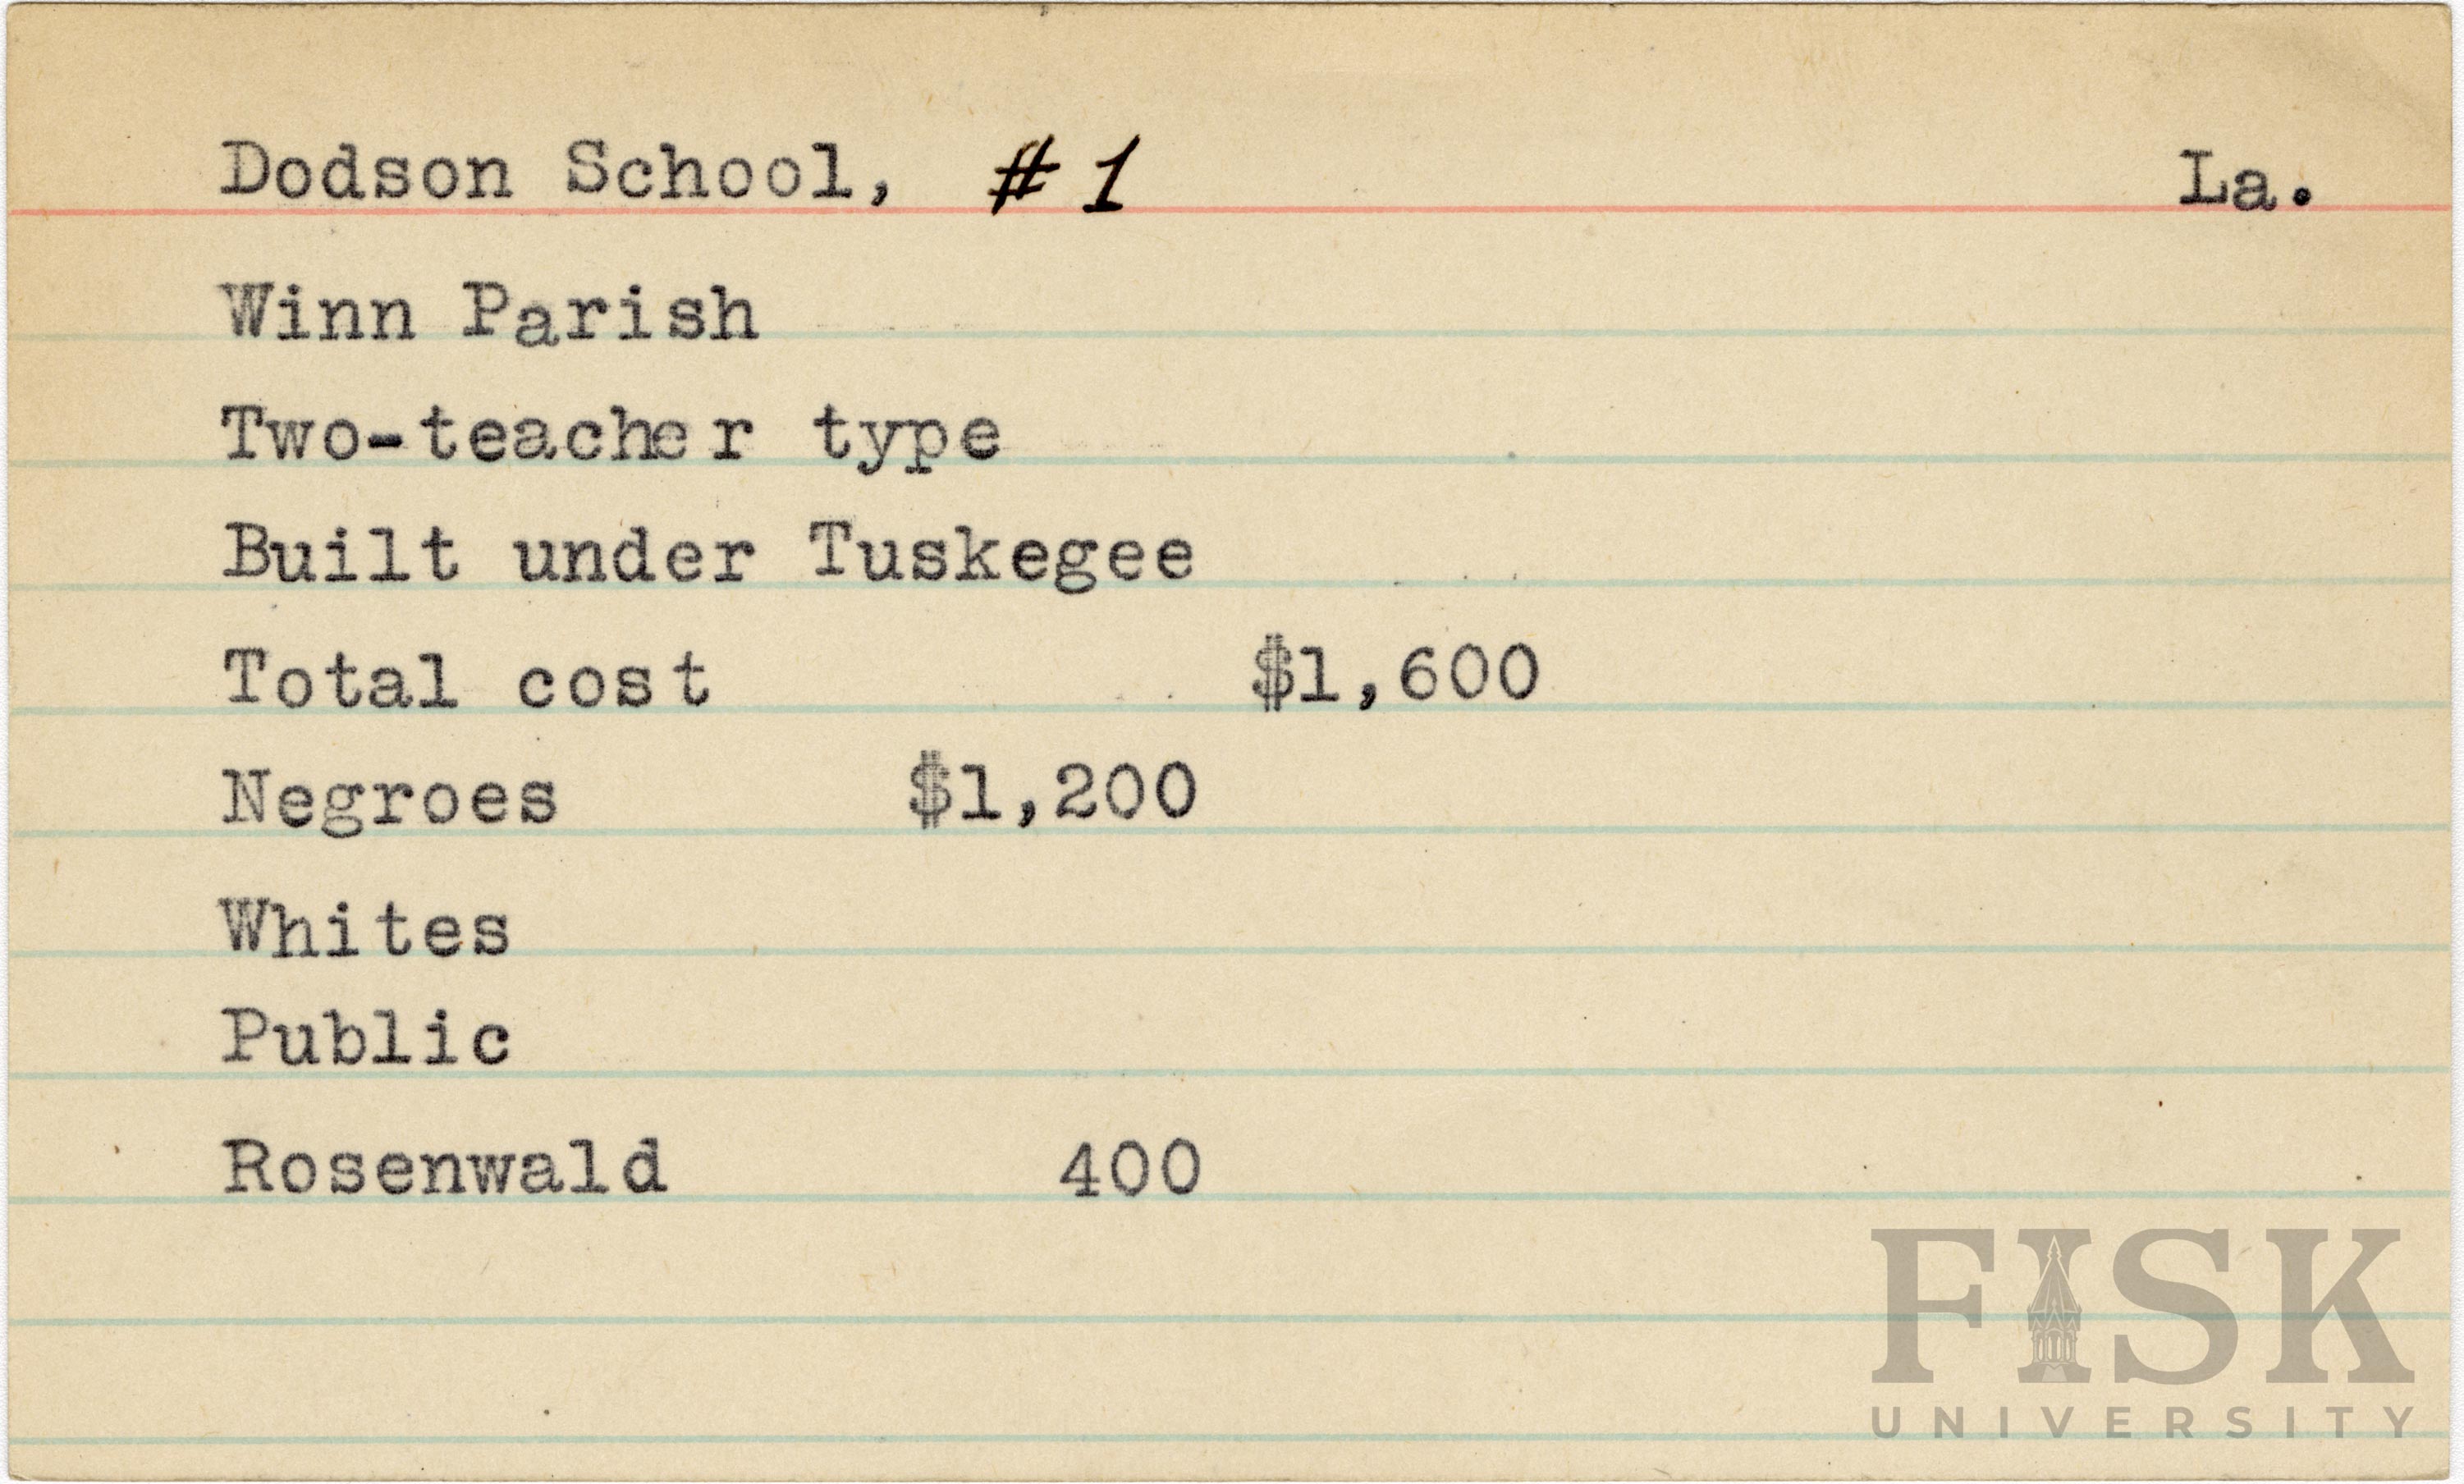 Dodson School, #1 La.
Winn Parish
Two-teacher type
Built under Tuskegee
Total cost $1,600
Negroes $1,200
Whites
Public
Rosenwald 400
FISK
UNIVERSITY